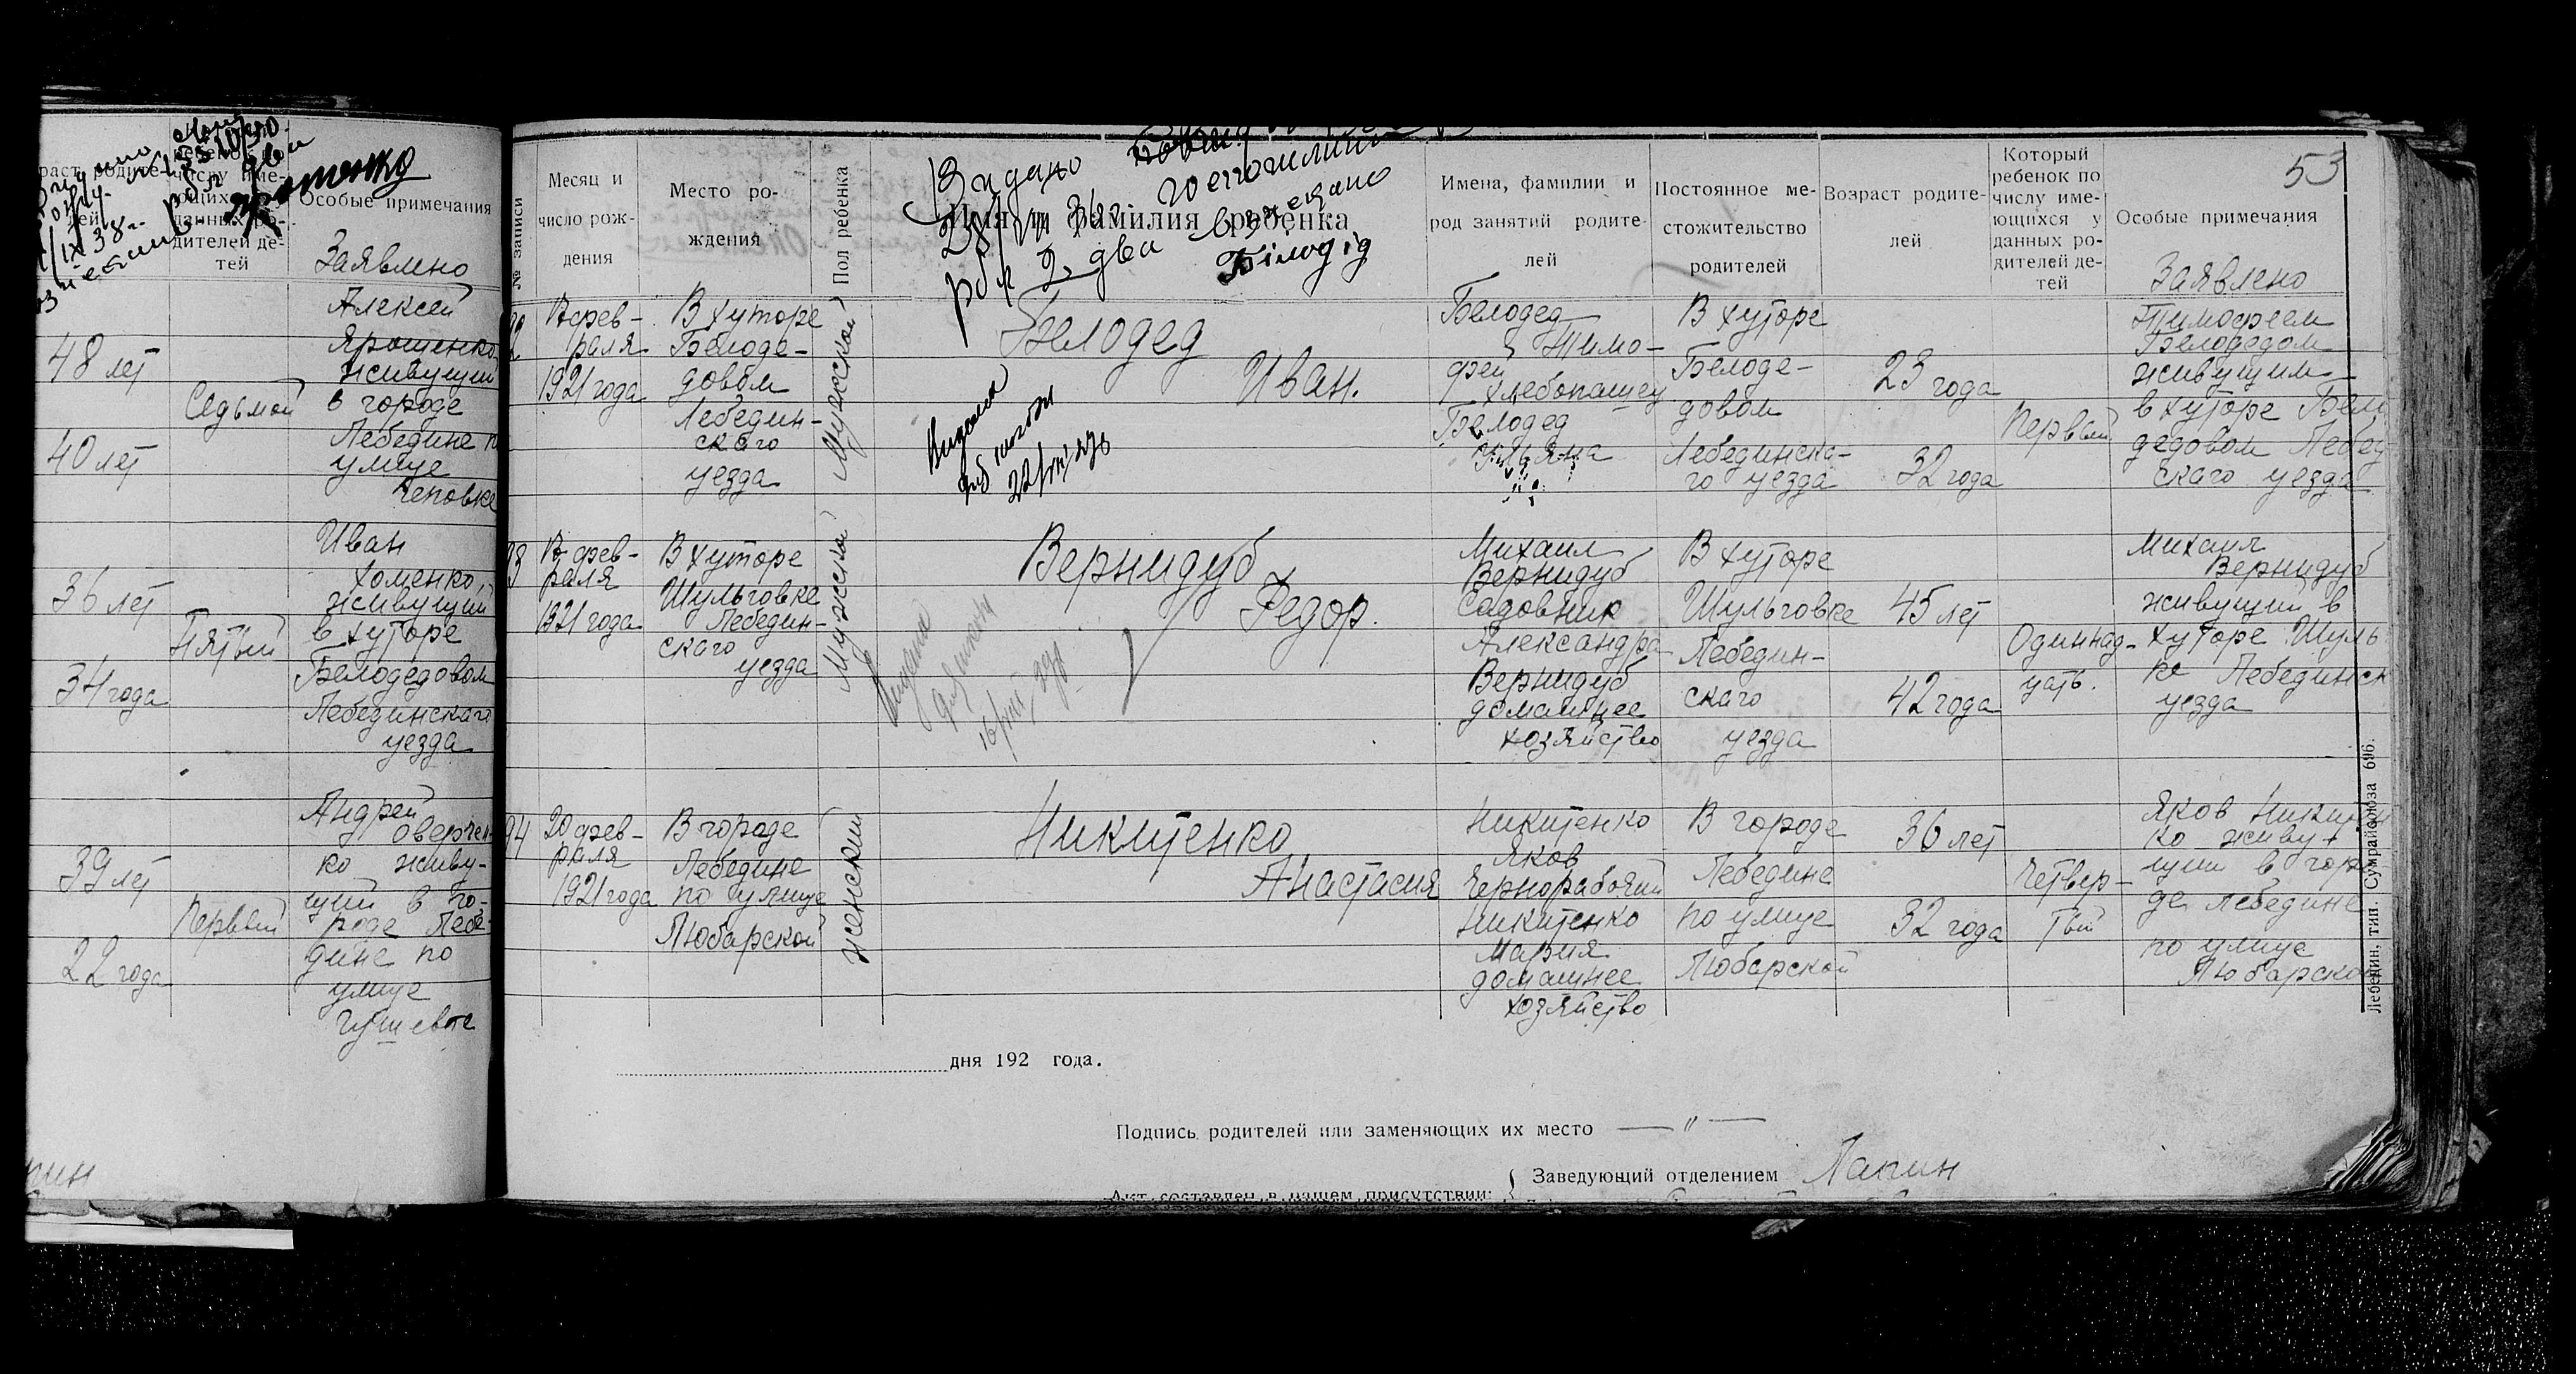 раст родите-
лей
числу име-
ющихся
данных ро-
дителей де-
тей
Особые примечания
Заявлено
48 лет
40 лет
Седьмой
Алексей
Ярошенко
живущий
в городе
Лебедине
улице
36 лет
34 года
Пятый
Иван
Хоменко,
живущий
в хуторе
Белодедовом
Лебединскаго
уезда
39 лет
22 года
Первый
Андрей
ко живу-
щий в го-
роде Лебе-
дине по
улице
№ записи
Месяц и
число рож-
дения
Место ро-
ждения
Пол ребенка
Имя и фамилия ребенка
Имена, фамилии и
род занятий родите-
лей
Постоянное ме-
стожительство
родителей
Возраст родите-
лей
Который
ребенок по
числу име-
ющихся у
данных ро-
дителей де-
тей
Особые примечания
53
Заявлено
Видано
рбл 2, два
Білодід
фев-
раля
1921 года
В хуторе
Белоде-
довом
Лебедин-
скаго
уезда
Мужской
Белодед
Иван.
Белодед
Тимо-
фей
хлебопашец
Белодед
Ульяна
В хуторе
Белоде-
довом
Лебединска-
го уезда
23 года
32 года
Первый
Тимофеем
Белодедом
живущим
в хуторе Бело
дедовом Лебед
скаго уезда
фев-
раля
1921 года
В хуторе
Шульговке
Лебедин-
скаго
уезда
Мужской
Вернидуб
Федор.
Михаил
Вернидуб
Садовник
Александра
Вернидуб
домашнее
хозяйство
В хуторе
Шульговке
Лебедин-
скаго
уезда
45 лет
42 года
Одиннад-
цать.
Михаил
Вернидуб
живущий в
хуторе Шуль
ке Лебединск
уезда
94
20 фев-
раля
1921 года
В городе
Лебедине
по улице
Любарской
Женский
Никитенко
Анастасия
Никитенко
Яков
Чернорабочий
Никитенко
Мария
домашнее
хозяйство
В городе
Лебедине
по улице
Любарской
36 лет
32 года
Четвер-
тый
Яков Никитен
ко живу-
щий в горо
де Лебедине
по улице
Любарской
Лебедин, тип. Сумрайсоюза 696.
дня 192 года.
Подпись родителей или заменяющих их место — " —
Заведующий отделением Лапин
Акт составлен в нашем присутствии: